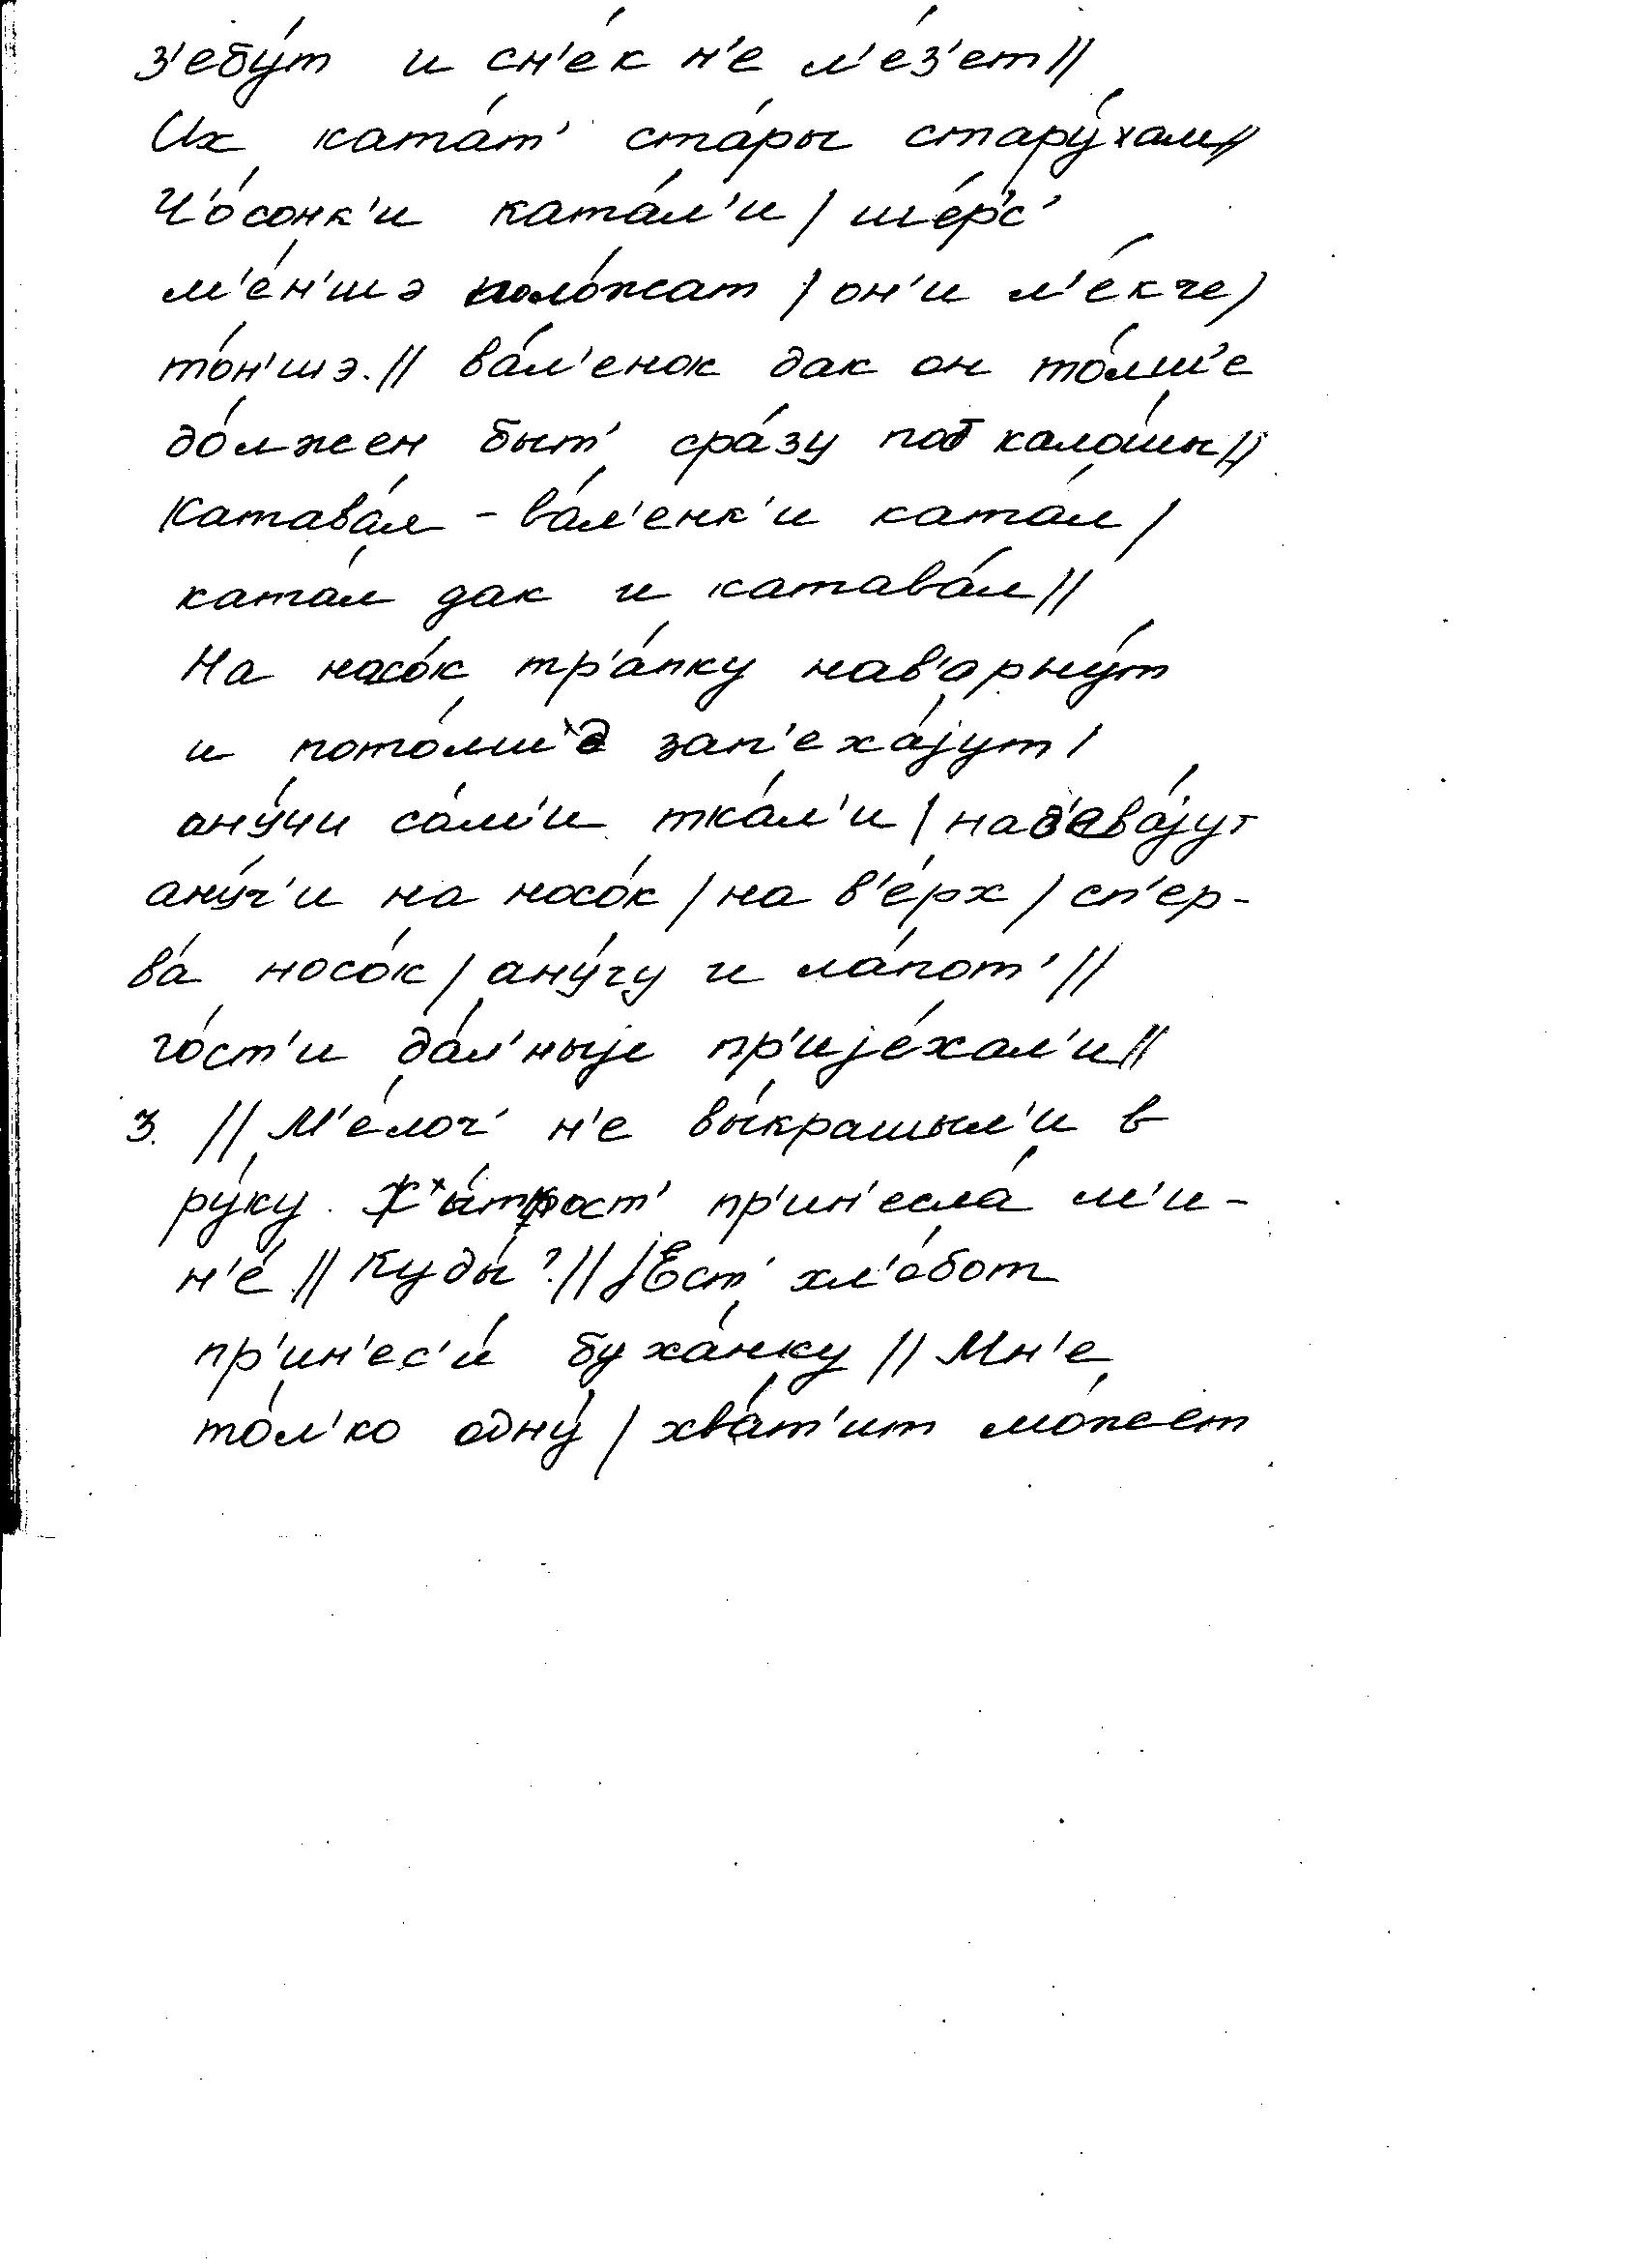 з'ебу́т и сн'е́к н'е л'е́з'ет //
Их ката́т' ста́ры стару́хам //
Ч'о́сонк'и ката́л'и / ше́р'с'
м'е́н'шэ поло́жат / он'и л'е́кче /
то́н'шэ. // ва́л'енок дак он то́лш'е
до́лжен быт' сра́зу под кало́шы //
Катава́л – ва́л'енк'и ката́л /
ката́л дак и катава́л //
На носо́к тр'а́пку нав'орну́т
и пото́лш'э зап'еха́jут /
ану́чи са́м'и тка́л'и / над'ева́jут
ану́ч'и на носо́к / на в'е́рх / сп'ер-
ва́ носо́к / ану́чу и ла́пот' //
го́ст'и да́л'ныjе пр'иjе́хал'и //
3. // М'е́лоч' н'е вы́крашыл'и в
ру́ку. Хы́трост' пр'ин'есла́ м'и-
н'е́ // Куды́? // jЕст' хл'е́бот
пр'ин'ес'и́ буха́нку // Мн'е
то́л'ко одну́ / хва́т'ит мо́жеет